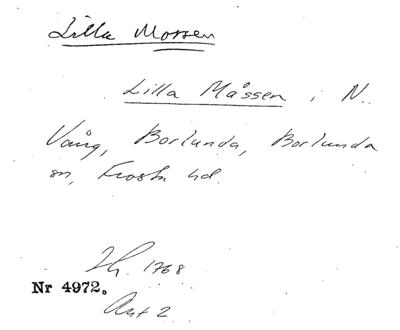 Lilla Mossen
Lilla Måssen i N.
Vång, Borlunda, Borlunda
sn, Frosta hd.
1768
Nr 4972.
Akt 2